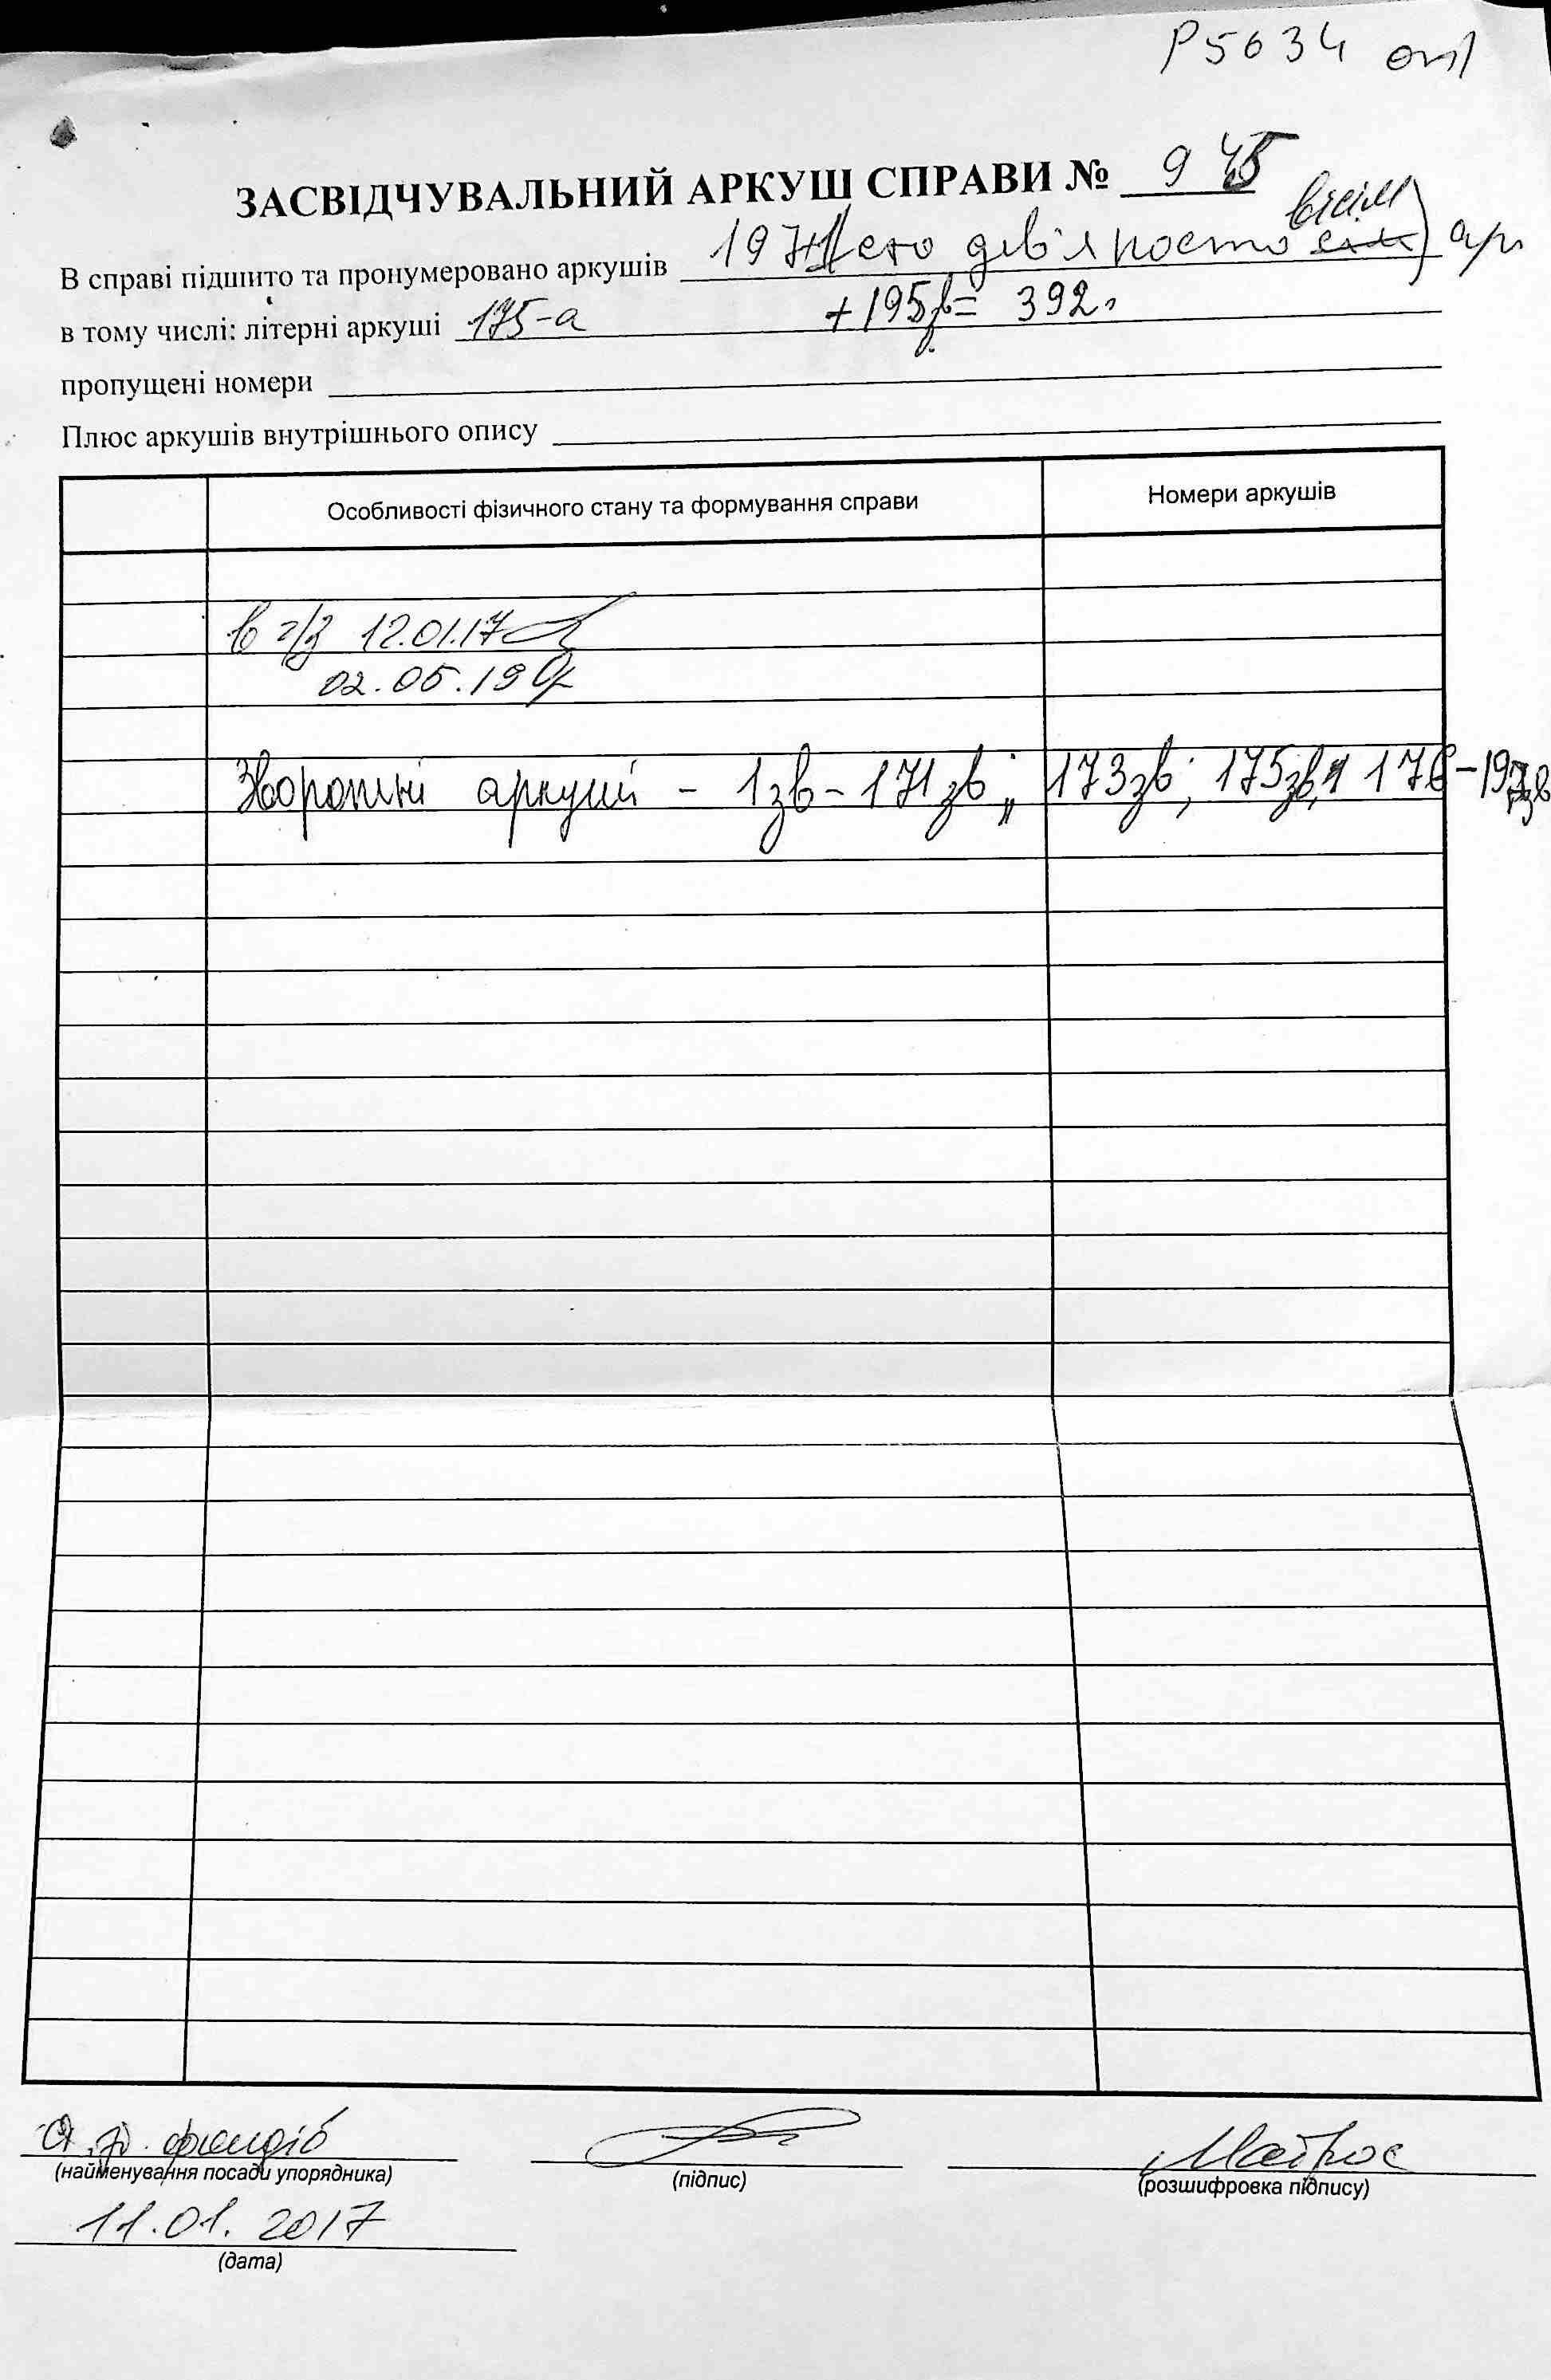 Р5634 оп1
ЗАСВІДЧУВАЛЬНИЙ АРКУШ СПРАВИ № 945
вісім
В справі підшито та пронумеровано аркушів 197+1(сто дев'яносто сім) арк
в тому числі: літерні аркуші 175-а +195зв= 392
пропущені номери
Плюс аркушів внутрішнього опису
Особливості фізичного стану та формування справи Номери аркушів
в г/з 12.01.17
02.05.19
Зворотні аркуші - 1зв-171зв; 173зв; 175зв, 176-197зв
фондів Матрос
(найменування посади упорядника) (підпис) (розшифровка підпису)
11.01.2017
(дата)